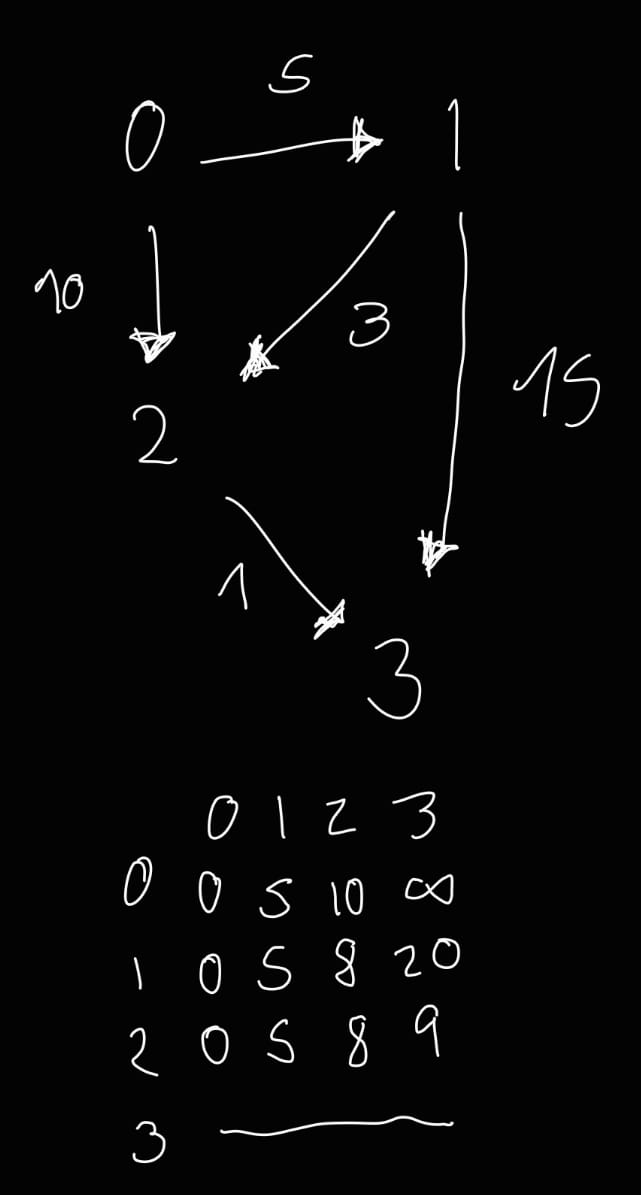 5
0 1
10 3
15
2
1
3
0 1 2 3
0 0 5 10 ∞
1 0 5 8 20
2 0 5 8 9
3